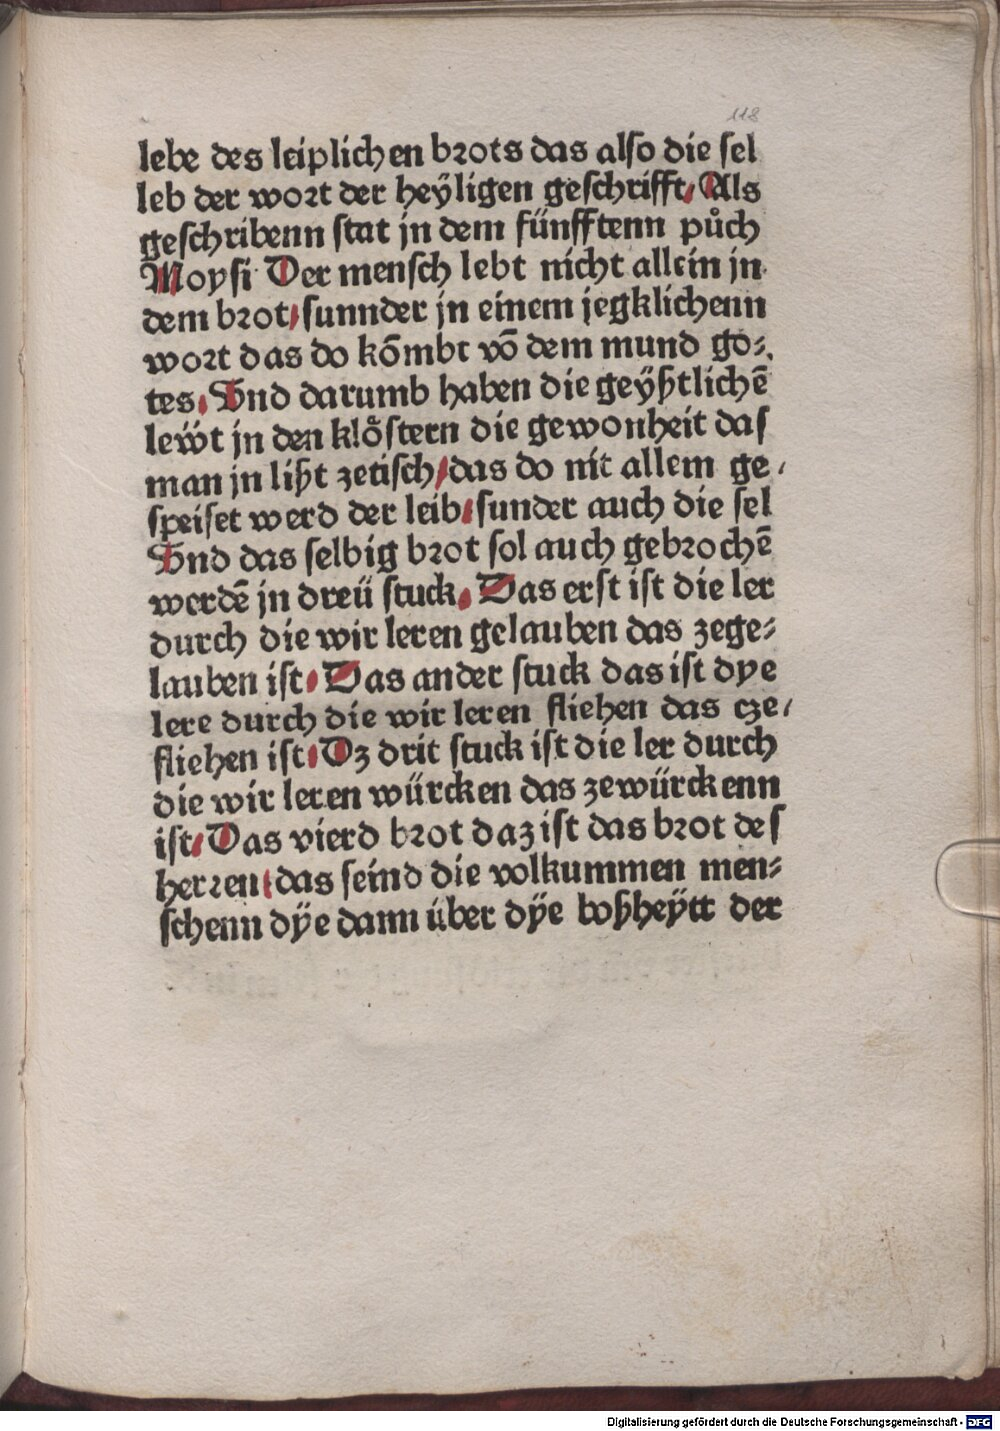 118
lebe des leiplichen brots das also die sel
leb der wort der heÿligen geschrifft, Als
geschribenn stat jn dem fünfftenn půch
Moysi Der mensch lebt nicht allein jn
dem brot, sunnder jn einem jegklichenn
wort das do kōmbt vō dem mund go-
tes, Vnd darumb haben die geÿßtlichē
lewt jn den klo̊stern die gewonheit das
man jn lißt zetisch, das do nit allem ge-
speiset werd der leib, sunder auch die sel
Vnd das selbig brot sol auch gebrochē
werdē jn dreü stuck, Das erst ist die ler
durch die wir leren gelauben das zege-
lauben ist, Das ander stuck das ist dye
lere durch die wir leren fliehen das cze-
fliehen ist, Dz drit stuck ist die ler durch
die wir leren würcken das zewürckenn
ist, Das vierd brot daz ist das brot des
herren, das seind die volkummen men-
schenn dÿe dann über dÿe boßheÿtt der
Digitalisierung gefördert durch die Deutsche Forschungsgemeinschaft - DFG